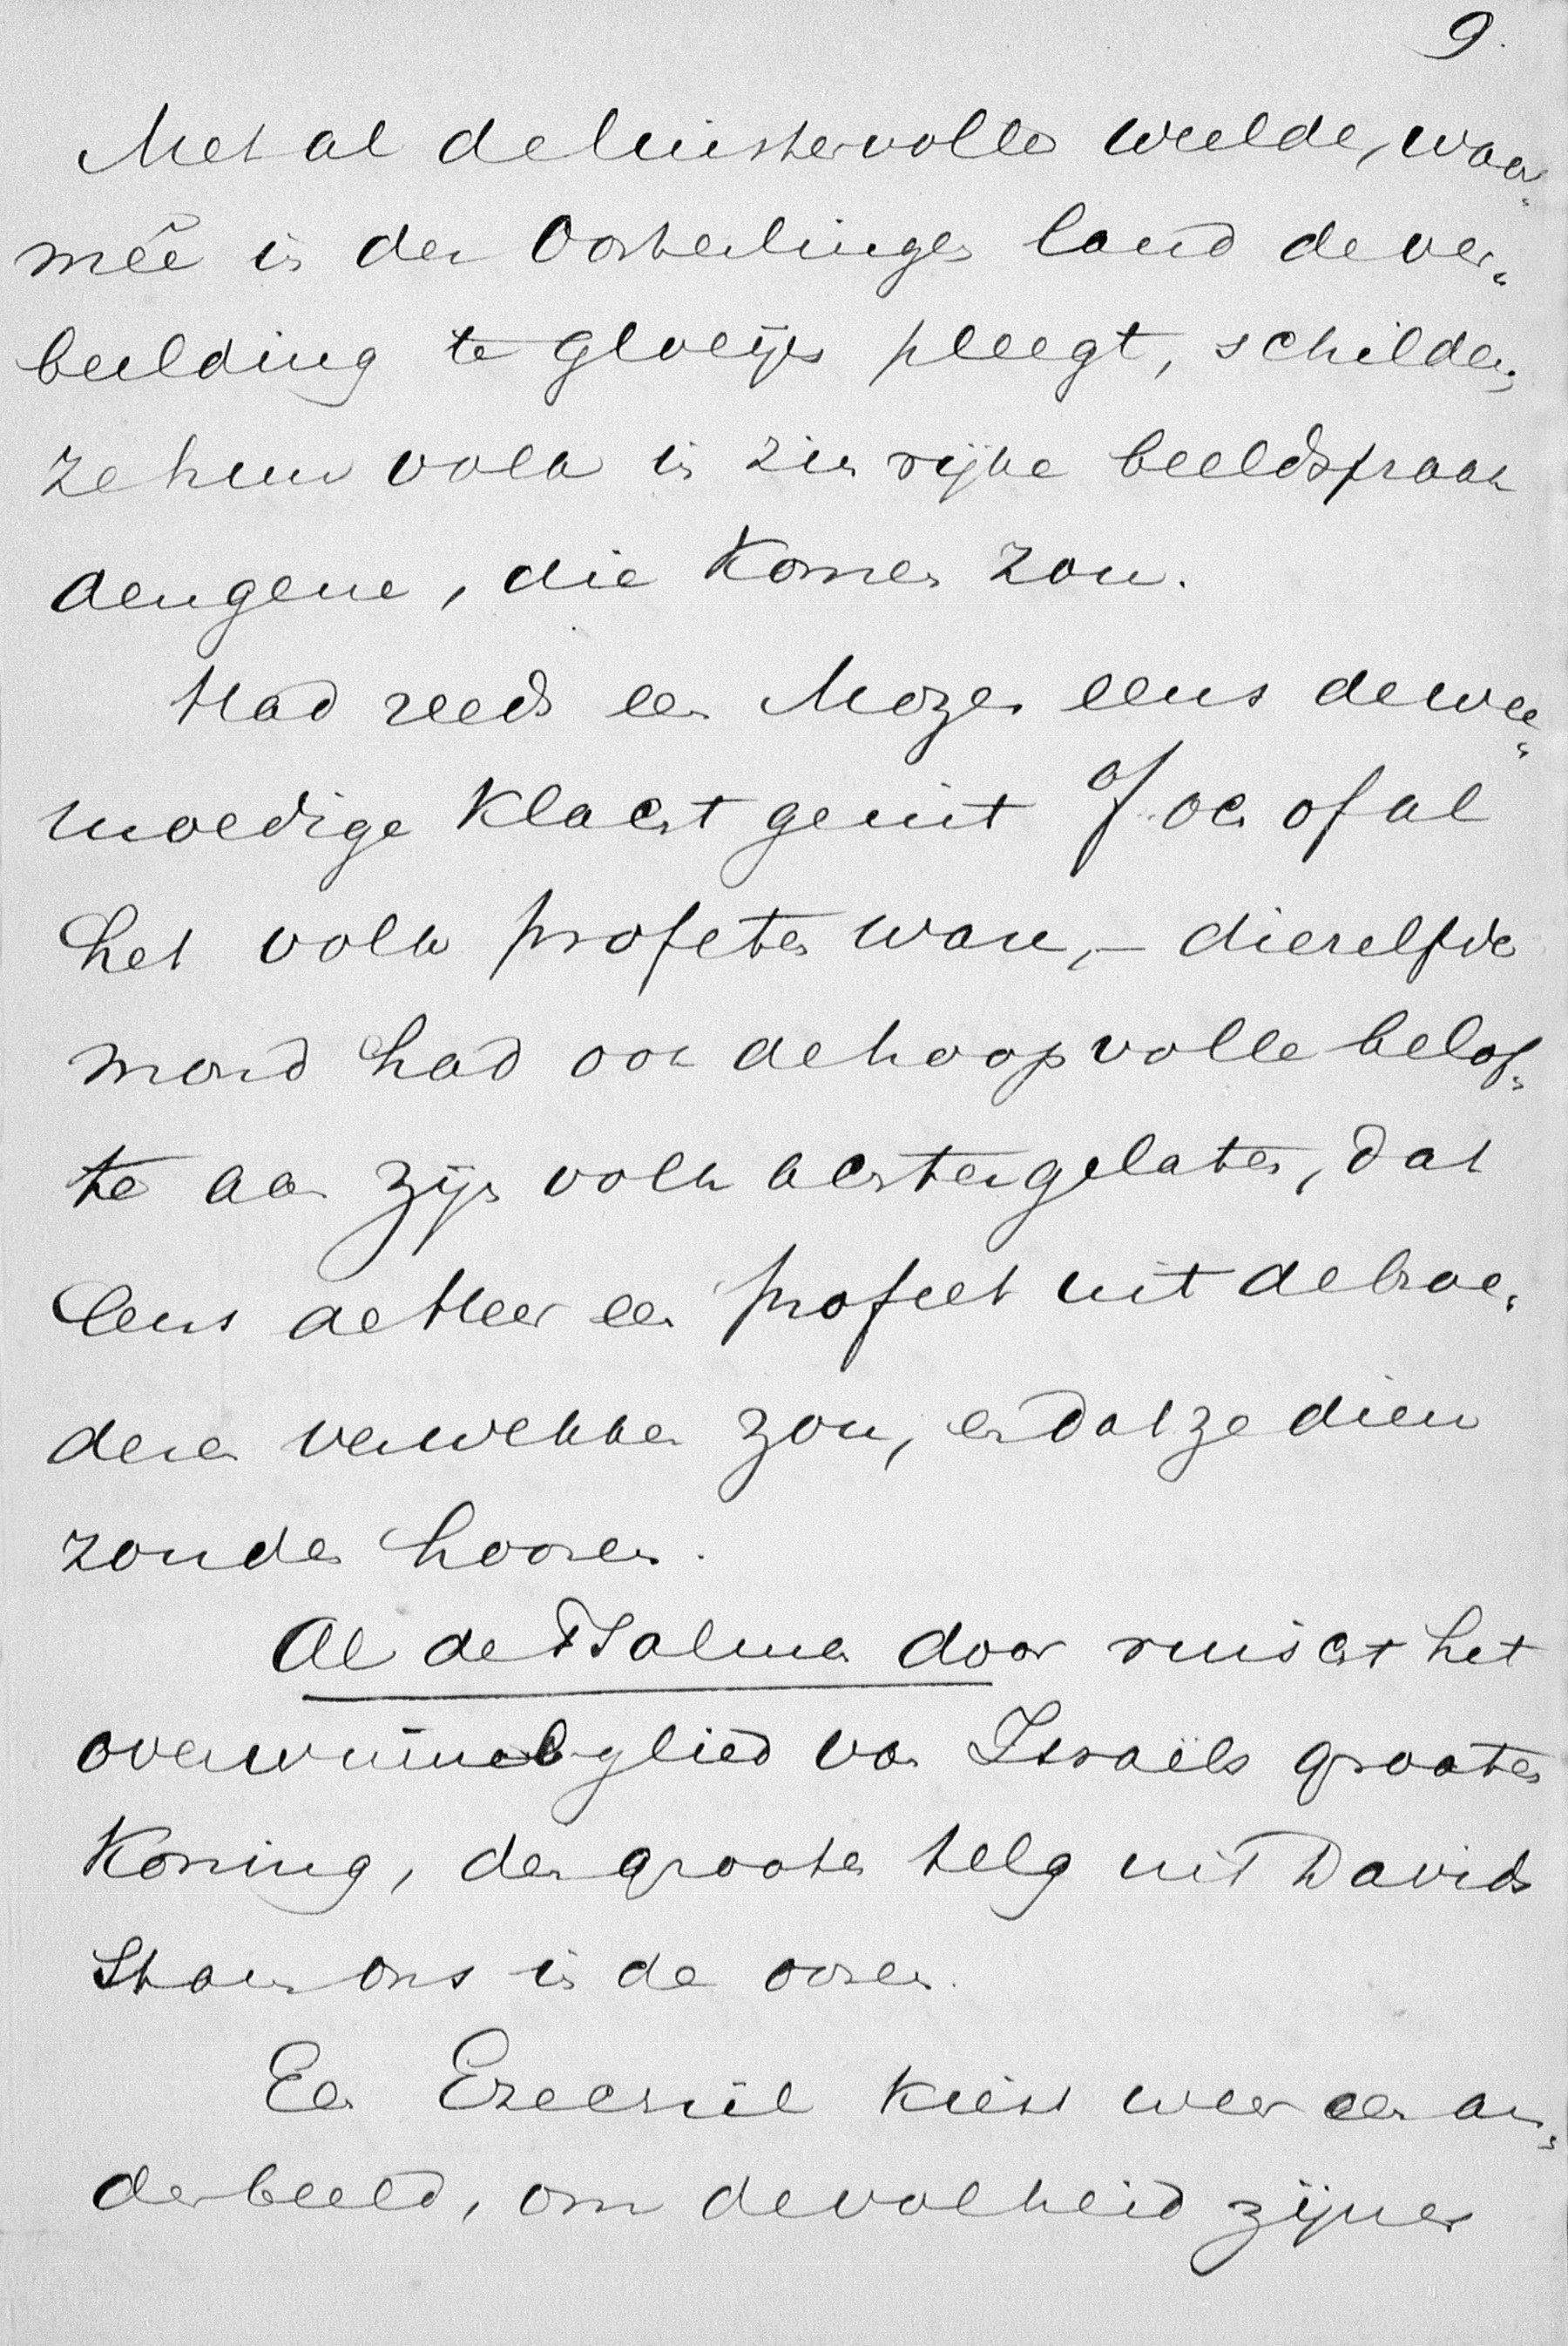 9.
Met al de luistervolle weelde, waar-
meê in der Oosterlingen land de ver-
beelding te gloeijen pleegt, schilderen
ze hun volk in zinrijke beeldspraak
dengene, die komen zou.
Had reeds een Mozes eens de wee-
moedige klacht geuit of och of al
het volk profeten ware, – diezelfde
mond had ook de hoopvolle belof-
te aan zijn volk achtergelaten, dat
eens de Heer een profeet uit de broe-
deren verwekken zou, en dat ze dien
zouden hooren.
Al de Psalmen door ruischt het
overwinnelyglied van Israëls grooten
Koning, den grooten telg uit Davids
Stam ons in de ooren.
Een Ezechiël kiest weer een an-
der beeld, om de volheid zijner